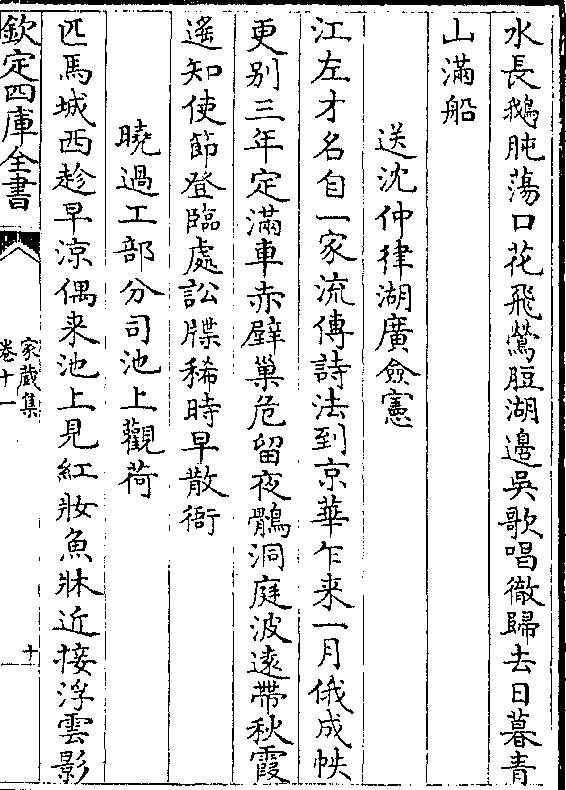 水長鵝肫蕩口花飛鶯脰湖邊吳歌唱徹歸去日暮青
山滿船
送沈仲律湖廣僉憲
江左才名自一家流傳詩法到京華乍来一月俄成帙
更别三年定滿車赤壁巢危留夜鶻洞庭波遠帶秋霞
遥知使節登臨處訟牒稀時早散衙
曉過工部分司池上觀荷
匹馬城西趁早涼偶来池上見紅妝魚牀近接浮雲影
欽定四庫全書
家藏集
卷十一
十